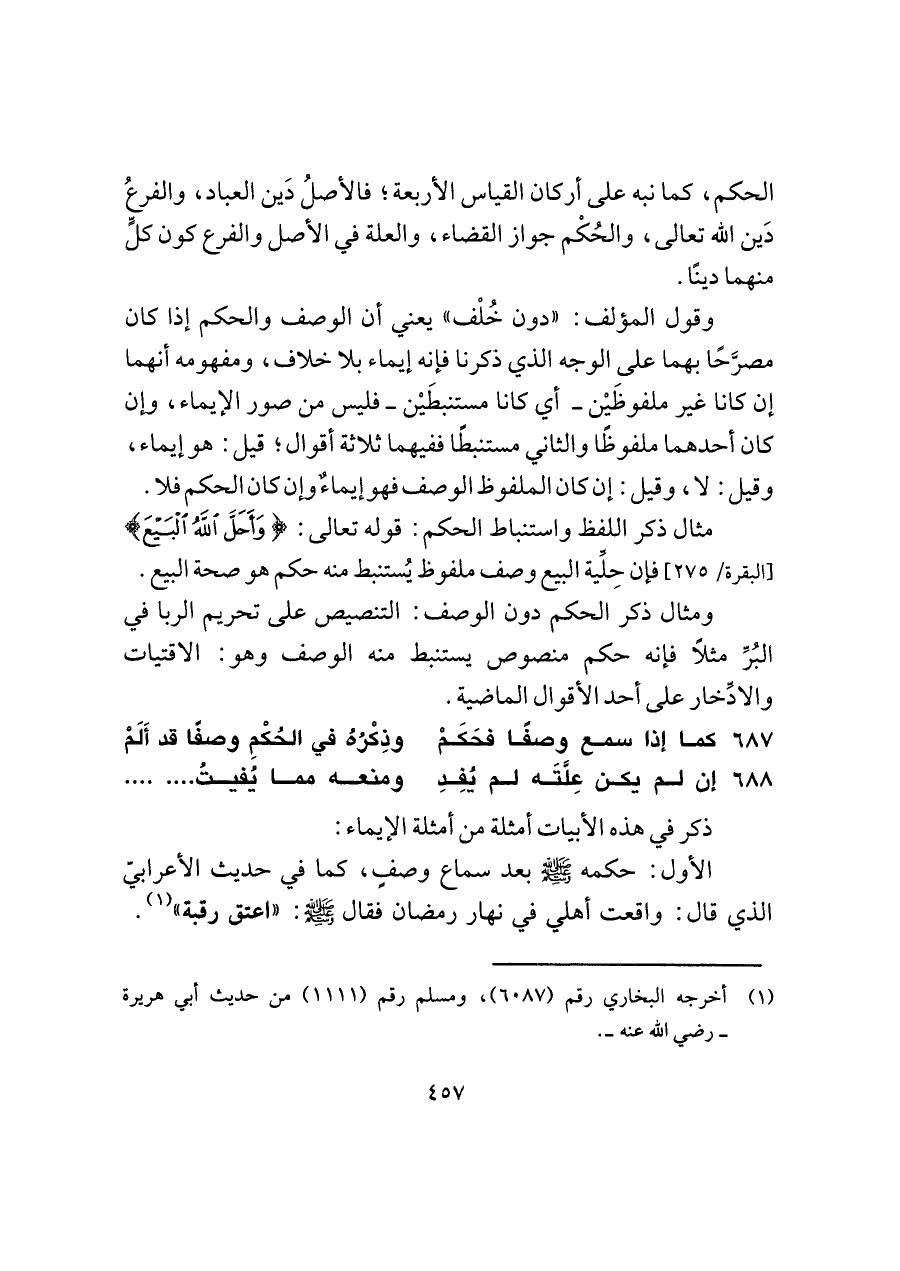 الحكم، كما نبه على أركان القياس الأربعة؛ فالأصلُ دَين العباد، والفرعُ
دَين الله تعالى، والحُكْم جواز القضاء، والعلة في الأصل والفرع كون كلٍّ
منهما دينًا.
وقول المؤلف: «دون خُلْف» يعني أن الوصف والحكم إذا كان
مصرَّحًا بهما على الوجه الذي ذكرنا فإنه إيماء بلا خلاف، ومفهومه أنهما
إن كانا غير ملفوظَيْن ـ أي كانا مستنبطَيْن ـ فليس من صور الإيماء، وإن
كان أحدهما ملفوظًا والثاني مستنبطًا ففيهما ثلاثة أقوال؛ قيل: هو إيماء،
وقيل: لا، وقيل: إن كان الملفوظ الوصف فهو إيماءٌ وإن كان الحكم فلا.
مثال ذكر اللفظ واستنباط الحكم: قوله تعالى: ﴿ وَأَحَلَّ ٱللَّهُ ٱلْبَيْعَ﴾
[البقرة/ ٢٧٥] فإن حِلِّية البيع وصف ملفوظ يُستنبط منه حكم هو صحة البيع.
ومثال ذكر الحكم دون الوصف: التنصيص على تحريم الربا في
البُرِّ مثلاً فإنه حكم منصوص يستنبط منه الوصف وهو: الاقتيات
والادِّخار على أحد الأقوال الماضية.
٦٨٧ كما إذا سمع وصفًا فحَكَمْ وذِكْرُهُ في الحُكْمِ وصفًا قد ألَمْ
٦٨٨ إن لم يكن عِلَّتَه لم يُفِدِ ومنعه مما يُفيتُ.... ....
ذكر في هذه الأبيات أمثلة من أمثلة الإيماء:
الأول: حكمه ﷺ بعد سماع وصفٍ، كما في حديث الأعرابيّ
الذي قال: واقعت أهلي في نهار رمضان فقال ﷺ: «اعتق رقبة»(١).
(١) أخرجه البخاري رقم (٦٠٨٧)، ومسلم رقم (١١١١) من حديث أبي هريرة
ـ رضي الله عنه ـ.
٤٥٧